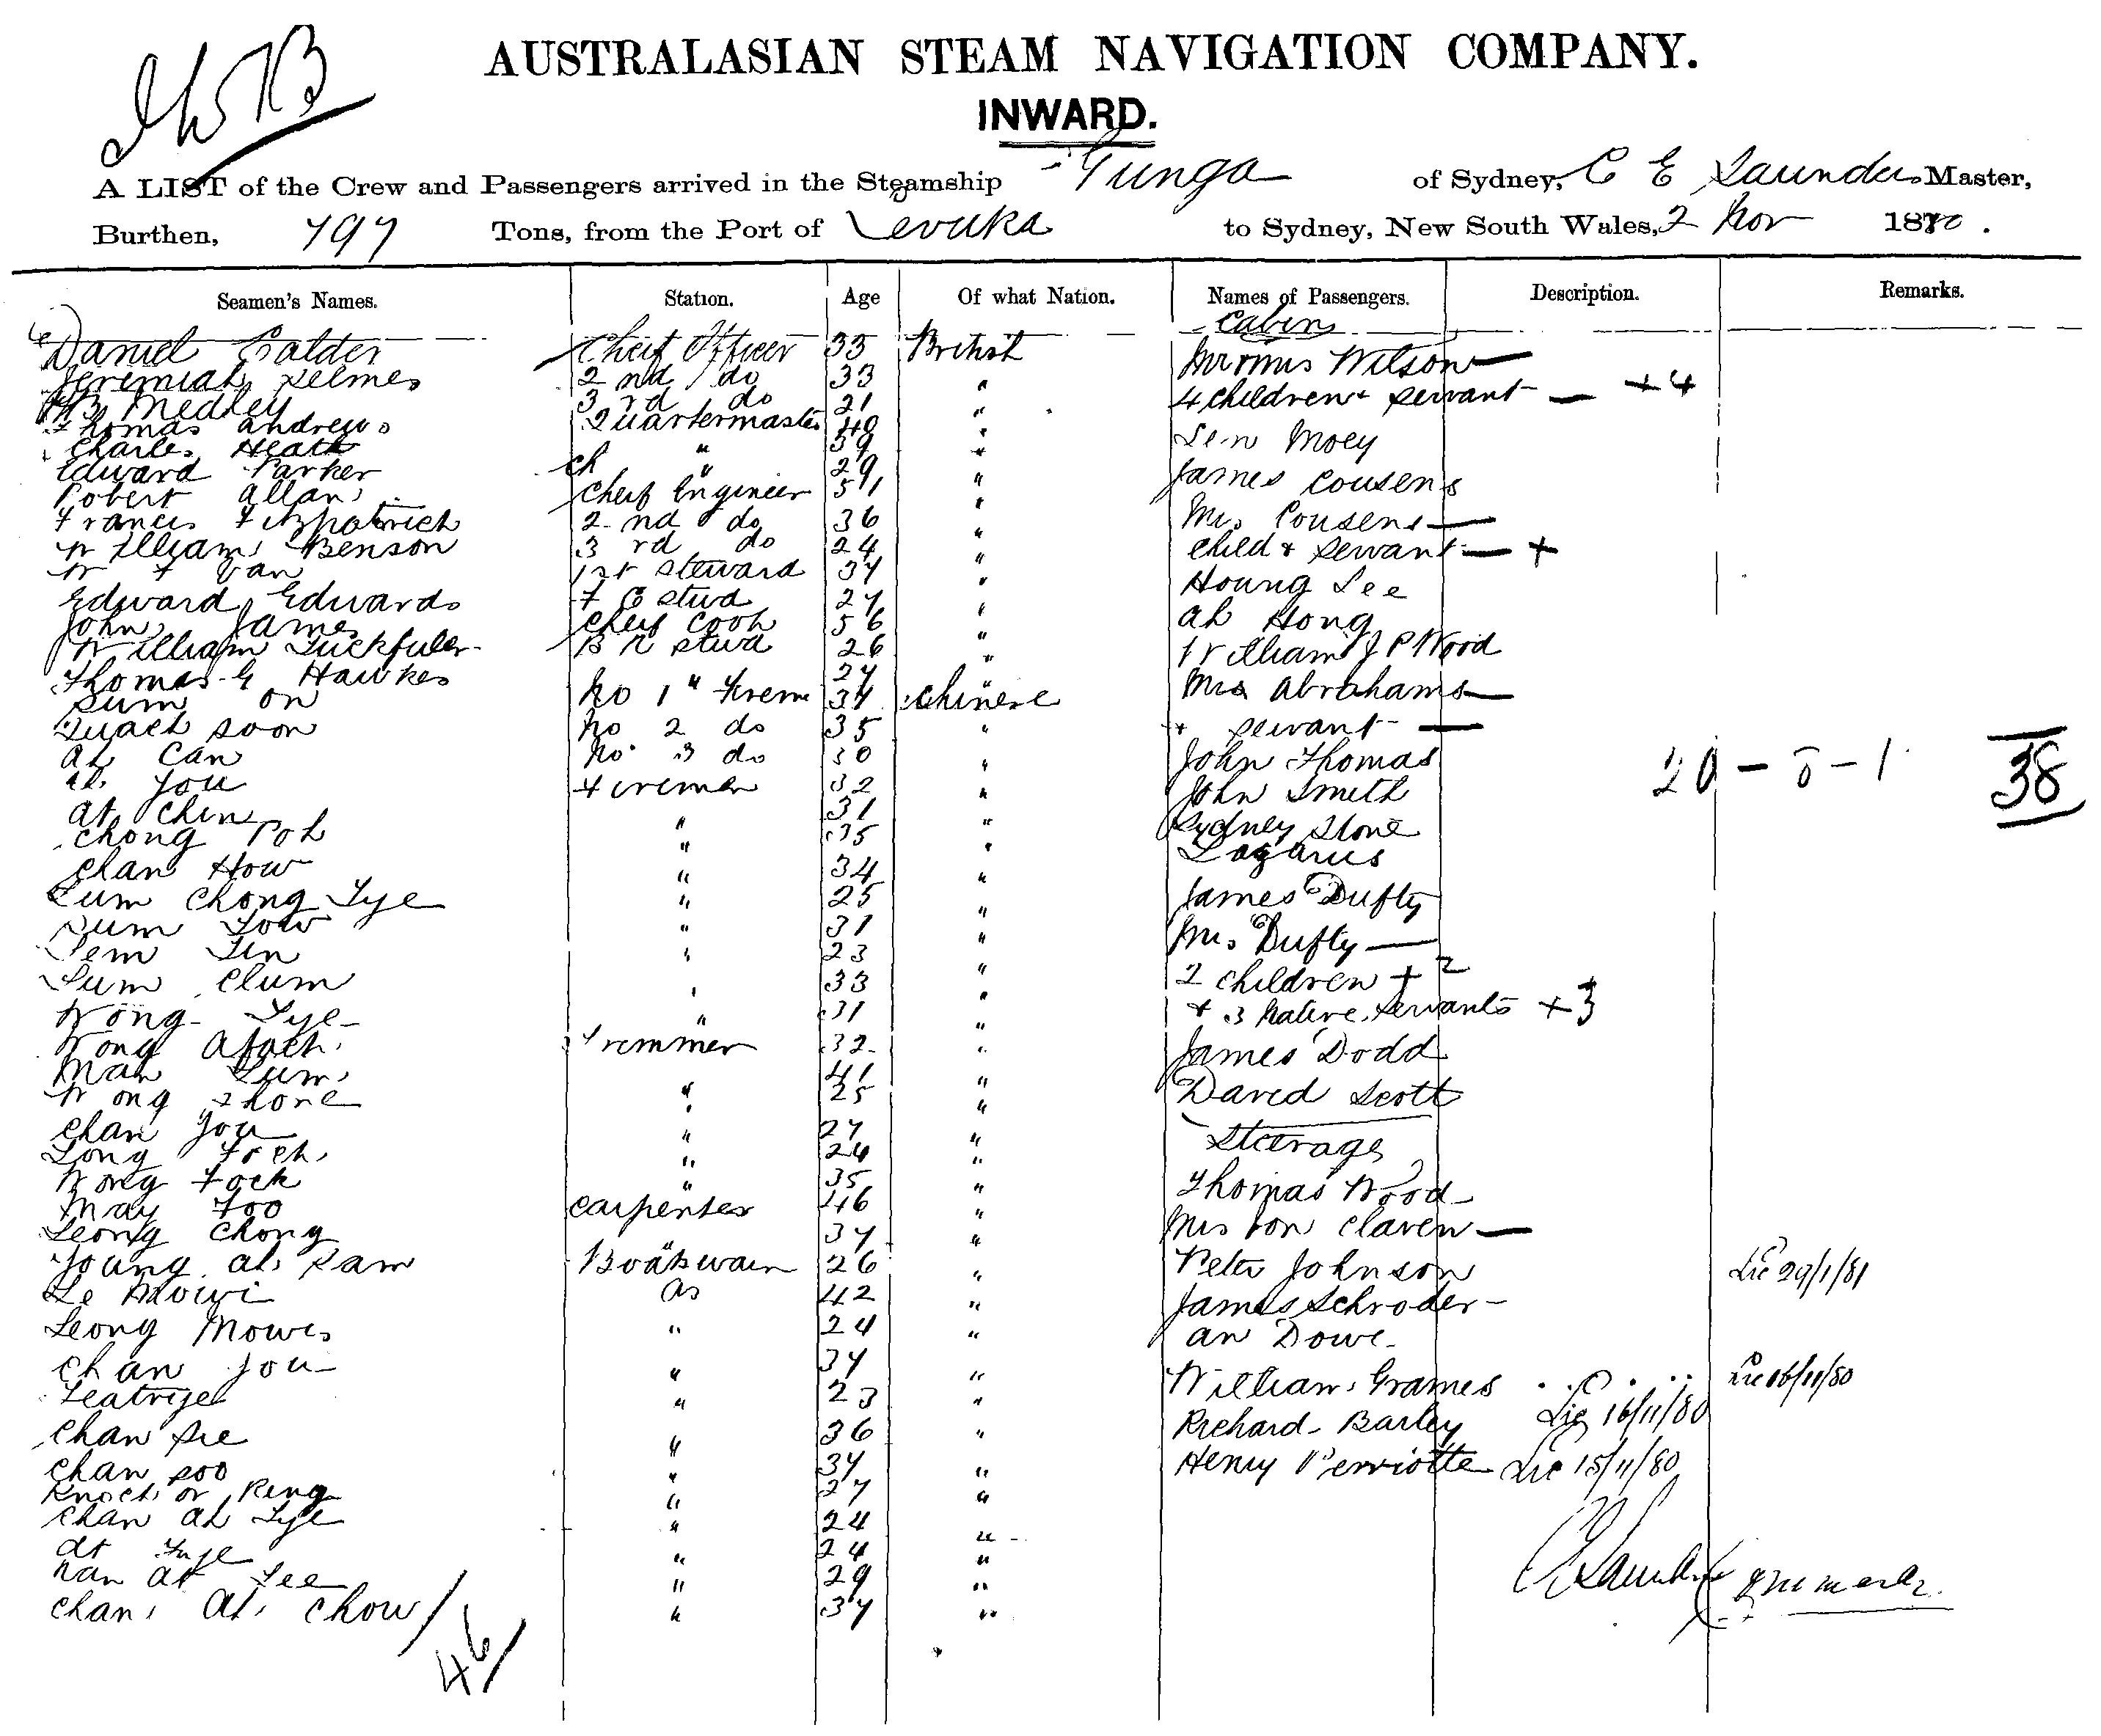 AUSTRALASIAN STEAM NAVIGATION COMPANY.
INWARD.
A LIST of the Crew and Passengers arrived in the Steamship Gunga of Sydney, C E Saunders Master,
Burthen, 797 Tons, from the Port of Levuka to Sydney, New South Wales, 2 Nov 1880.
Seamen's Names. Station. Age Of what Nation. Names of Passengers. Description. Remarks.
Cabin
Daniel Calder Cheif Officer 33 British Mr & Mrs Wilson
Jeremiah Selmes 2nd do 33 " 4 children & servant — +4
Medley 3rd do 21 "
Thomas Andrews Quartermaster 49 " Sen Moey
Charles Heath " 39 "
Edward Parker " 29 " James Cousens
Robert Allan Cheif Engineer 51 "
Francis Fitzpatrick 2nd do 36 " Mrs Cousens —
William Benson 3rd do 24 " child & servant — +
1st Steward 37 " Houng See
Edward Edwards F C Stwd 27 "
John James Cheif Cook 56 " Ah Hong
William Tuckfuler B R Stwd 26 " William J P Wood
Thomas G Hawkes 27 " Mrs Abrahams —
Sum On No 1 " Firem 34 Chinese
Quach Soon No 2 do 35 " & servant —
Ah Can No 3 do 30 " John Thomas 20 - 8 - 1 38
Ah You Firemen 32 " John Smith
At Chin " 31 " Sydney Stone
Chong Poh " 35 " Lazarus
Chan How " 34 "
Lum Chong Tye " 25 " James Dufty
Sum Low " 31 " Mrs Dufty —
Sem Tin " 23 "
Lum Clum " 33 " 2 children +2
Wong Tye " 31 " & 3 native servants +3
Wong Trimmer 32 " James Dodd
Man Lum 41 "
Wong " 25 " David Scott
Chan You " 27 " Steerage
Long " 24 "
Wong Fock " 35 " Thomas Wood
May Foo Carpenter 46 "
Leong Chong " 37 " Mrs von Claren —
Young Ah Kam Boatswain 26 " Peter Johnson Lic 29/1/81
Le 42 " James Schroder
Leong Mowi " 24 " an Dowe
Chan You " 34 " William Grames Lic 16/11/80
" 23 "
Chan See " 36 " Richard Barley Lic 16/11/80
Chan Soo " 34 " Henry Perriotte Lic 15/11/80
" 27 "
Chan Ah Tye " 24 "
At " 24 "
At See " 29 "
Chan Ah Chow " 37 "
46
C E Saunders